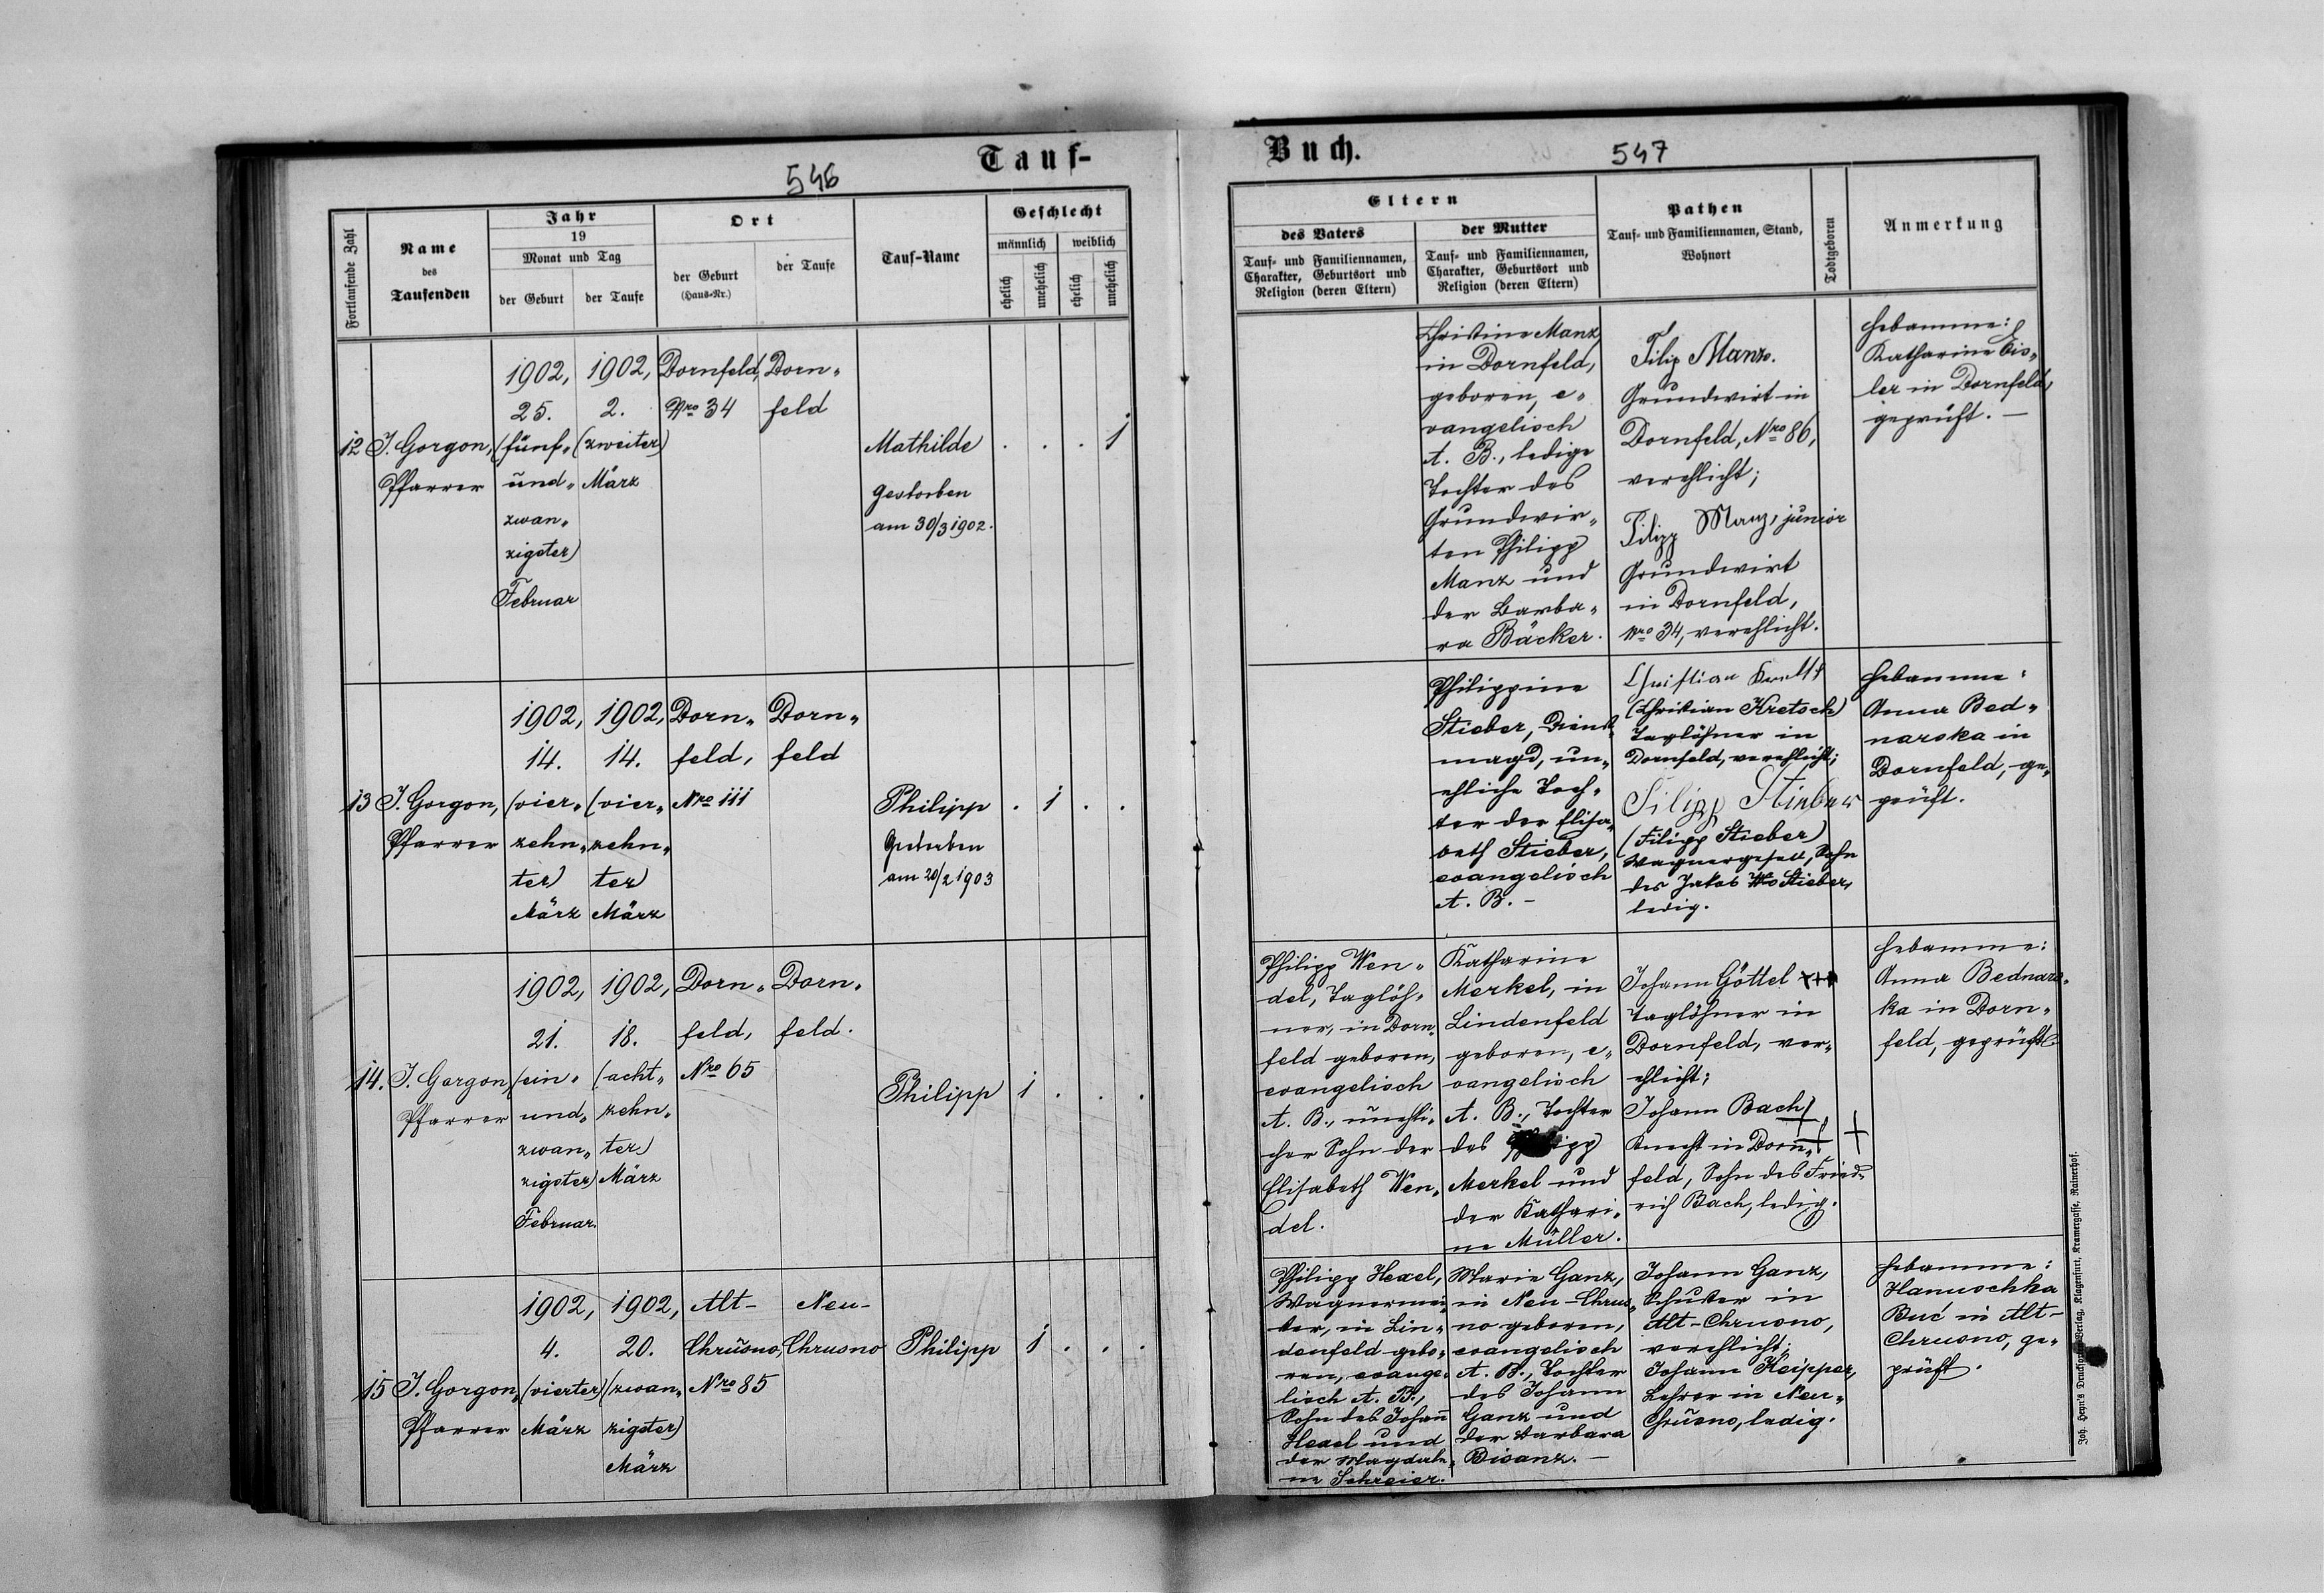 Tauf-
546
Fortlaufende Zahl
Name
des
Taufenden
Jahr
19
Monat und Tag
der Geburt
der Taufe
Ort
der Geburt
(Haus-Nr.)
der Taufe
Tauf-Name
Geschlecht
männlich
weiblich
ehelich
unehelich
ehelich
unehelich
12
J. Gorgon,
Pfarrer
1902,
25.
(fünf„
und„
zwan„
zigster)
Februar
1902,
2.
(zweiter)
März
Dornfeld,
Nro 34
Dorn„
feld
Mathilde
Gestorben
am 30/3 1902.
. . . 1
13
J. Gorgon,
Pfarrer
1902,
14.
(vier„
zehn„
ter)
März
1902,
14.
(vier„
zehn„
ter)
März
Dorn„
feld,
Nro 111
Dorn„
feld
Philipp
Gestorben
am 20/2 1903
. 1 . .
14.
J. Gorgon,
Pfarrer
1902,
21.
(ein„
und„
zwan„
zigster)
Februar.
1902,
18.
(acht„
zehn„
ter)
März
Dorn„
feld,
Nro 65
Dorn„
feld.
Philipp
1 . . .
15
J. Gorgon,
Pfarrer
1902,
4.
(vierter)
März
1902,
20.
(zwan„
zigster)
März
Alt-
Chrusno,
Nro 85
Neu-
Chrusno
Philipp
1 . . .
Buch.
547
Eltern
des Vaters
Tauf- und Familiennamen,
Charakter, Geburtsort und
Religion (deren Eltern)
der Mutter
Tauf- und Familiennamen,
Charakter, Geburtsort und
Religion (deren Eltern)
Pathen
Tauf- und Familiennamen, Stand,
Wohnort
Todtgeboren
Anmerkung
Christine Manz,
in Dornfeld,
geboren, e„
vangelisch
A. B., ledige
Tochter des
Grundwir„
ten Philipp
Manz und
der Barba„
ra Bäcker.
Filip Manz.
Grundwirt in
Dornfeld, Nro 86,
verehlicht;
Filipp Manz, junior
Grundwirt
in Dornfeld,
Nro 34, verehlicht.
Hebamme:
Katharine Eis„
ler in Dornfeld,
geprüft. —
Philippine
Stieber, Dienst„
magd, un„
ehliche Toch„
ter der Elisa„
beth Stieber,
evangelisch
A. B. –
Christian
(Christian Kretsch)
Taglöhner in
Dornfeld, verehlicht;
Filipp Stieber
(Filipp Stieber)
Wagnergesell, Sohn
des Jakob Stieber,
ledig.
Hebamme:
Anna Bed„
narska in
Dornfeld, ge„
prüft.
Philipp Wen„
del, Taglöh„
ner, in Dorn„
feld geboren,
evangelisch
A. B., unehli„
cher Sohn der
Elisabeth Wen„
del.
Katharine
Merkel, in
Lindenfeld
geboren, e„
vangelisch
A. B., Tochter
des Philipp
Merkel und
der Kathari„
ne Müller.
Johann Göttel +++
Taglöhner in
Dornfeld, ver„
ehlicht;
Johann Bach +
Knecht in Dorn„ + +
feld, Sohn des Fried„
rich Bach, ledig.
Hebamme:
Anna Bednars„
ka in Dorn„
feld, geprüft.
Philipp Hexel,
Wagnermei„
ster, in Lin„
denfeld gebo„
ren, evange„
lisch A. B.,
Sohn des Johann
Hexel und
der Magdale„
ne Schreier.
Marie Ganz,
in Neu-Chrus„
no geboren,
evangelisch
A. B., Tochter
des Johann
Ganz und
der Barbara
Bisanz. —
Johann Ganz,
Schuster in
Alt-Chrusno,
verehlicht;
Johann Keipper,
Lehrer in Neu-
Chrusno, ledig.
Hebamme:
Hanuschka
Buć in Alt-
Chrusno, ge„
prüft.
Joh. Heyn's Druck Verlag, Klagenfurt, Kramergasse, Rainerhof.